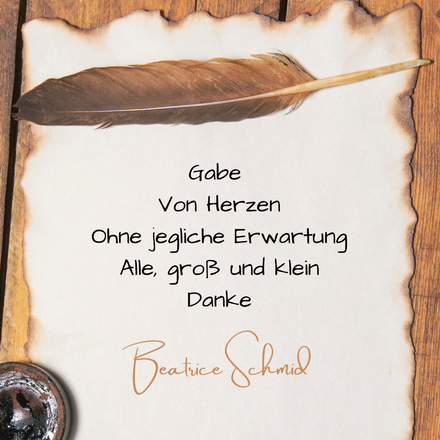 Gabe
Von Herzen
Ohne jegliche Erwartung
Alle, groß und klein
Danke
Beatrice Schmid